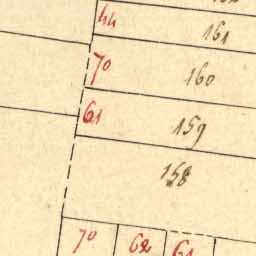 44
161
70
160
61
159
158
70 62 61